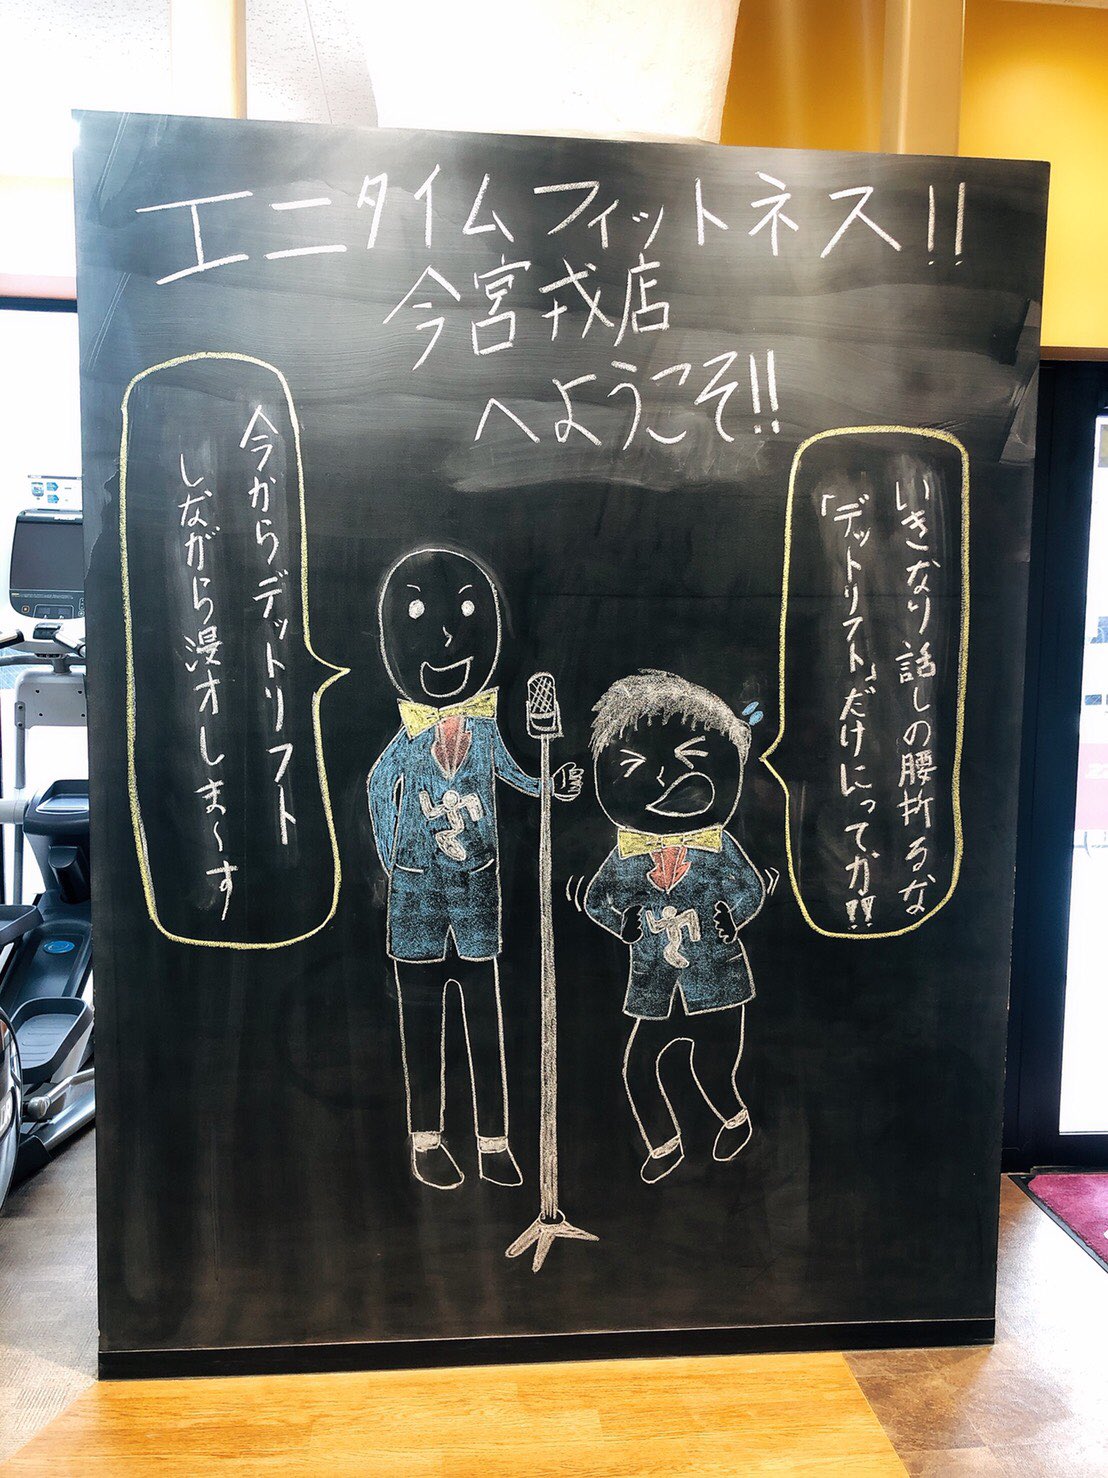 エニタイムフィットネス!!
今宮戎店
へようこそ!!
今からデットリフト
しながら漫才しま〜す
いきなり話しの腰折るな
「デットリフト」だけにってか!!